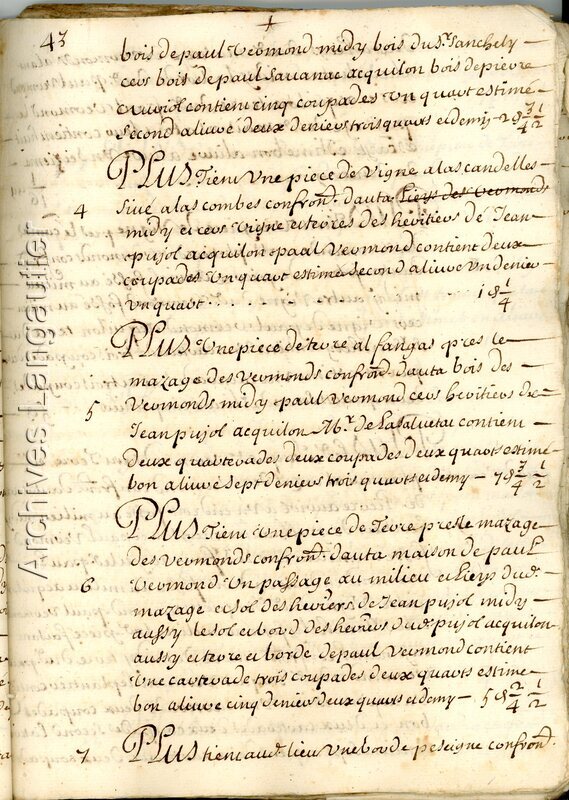 43
+
bois de paul Vermond midy bois du s.r Sanchely
cers bois de paul Savanac acquilon bois de pierre
contient cinq coupades un quart estimé
second alivré deux deniers trois quarts et demy — 2 ₰ 3/4 1/2
PLUS Tient Une piece de Vigne a las candelles
4 sive a las combes confron.t dauta Lieys des Vermonds
midy et cers Vigne et terres des heritiers de Jean
pujol acquilon paul Vermond contient deux
coupades Un quart estimé second alivré Un denier
Un quart . . . . . 1 ₰ 1/4
PLUS Une piece de terre al fangas pres le
mazage des Vermonds confron.t dauta bois des
5 Vermonds midy paul Vermond cers heritiers de
Jean pujol acquilon M.r de Lasalvetat contient
deux quarterades deux coupades deux quarts estimé
bon alivré sept deniers trois quarts et demy — 7 ₰ 3/4 1/2
PLUS Tient Une piece de Terre pres le mazage
des Vermonds confron.t dauta maison de paul
6 Vermond Un passage au milieu et Lieys dud.t
mazage et sol des herers de Jean pujol midy
aussy le sol et bord des herers dud.t pujol acquilon
aussy et terre et borde de paul Vermond contient
Une carterade trois coupades deux quarts estimé
bon alivré cinq deniers deux quarts et demy — 5 ₰ 2/4 1/2
7 PLUS tient aud.t lieu Une borde confron.t
Archives Langautier